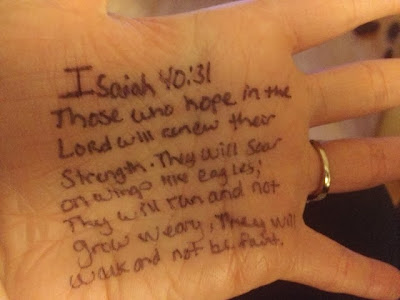 Isaiah 40:31
Those who hope in the
Lord will renew their
Strength. They will Soar
on wings like eagles;
They will run and not
grow weary, They will
walk and not be faint.